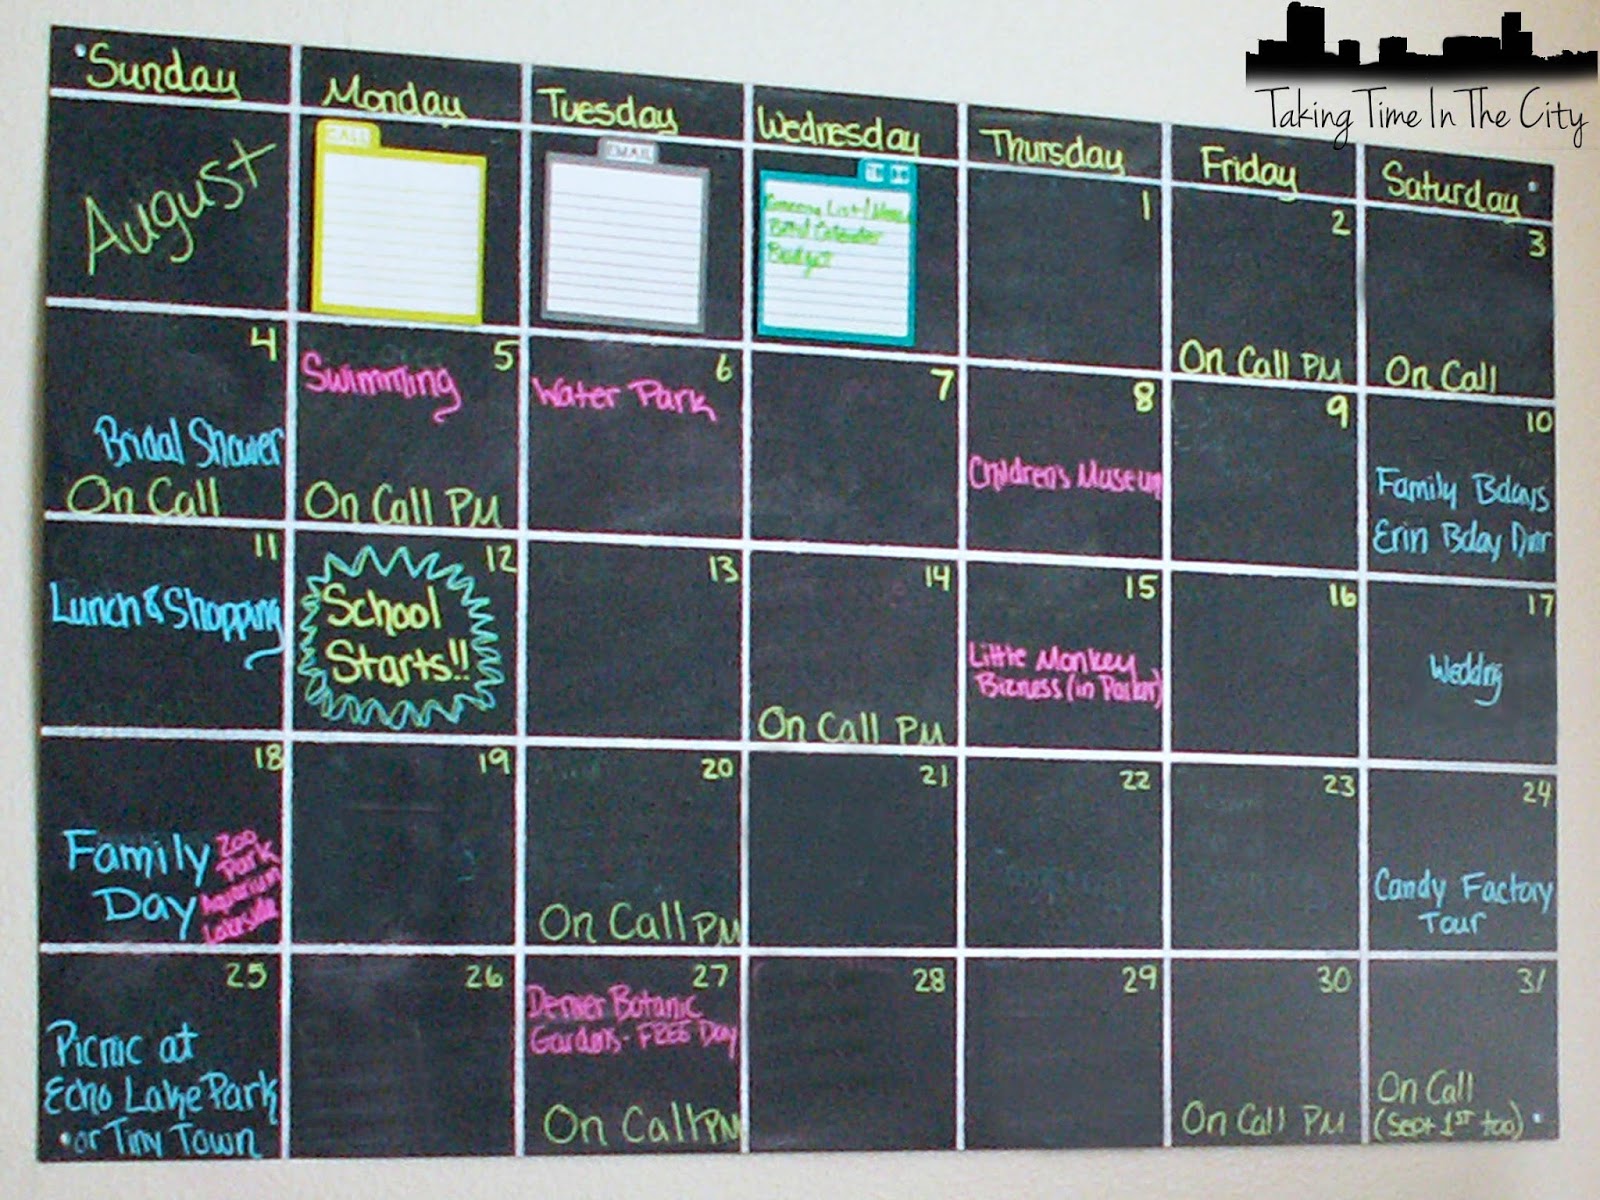 Taking Time In The City
Sunday
Monday
Tuesday
Wednesday
Thursday
Friday
Saturday
August
CALL
EMAIL
TO DO
Grocery List/
Calendar
Budget
1
2
On Call PM
3
On Call
4
Bridal Shower
On Call
5
Swimming
On Call PM
6
Water Park
7
8
Children's Museum
9
10
Family Bdays
Erin Bday Dinr
11
Lunch & Shopping
12
School
Starts!!
13
14
On Call PM
15
Little Monkey
Bizness (in Parker)
16
17
Wedding
18
Family
Day
Zoo
Park
Aquarium
Lakeside
19
20
On Call PM
21
22
23
24
Candy Factory
Tour
25
Picnic at
Echo Lake Park
or Tiny Town
26
27
Denver Botanic
Gardens - FREE Day
On Call PM
28
29
30
On Call PM
31
On Call
(Sept 1ST too)